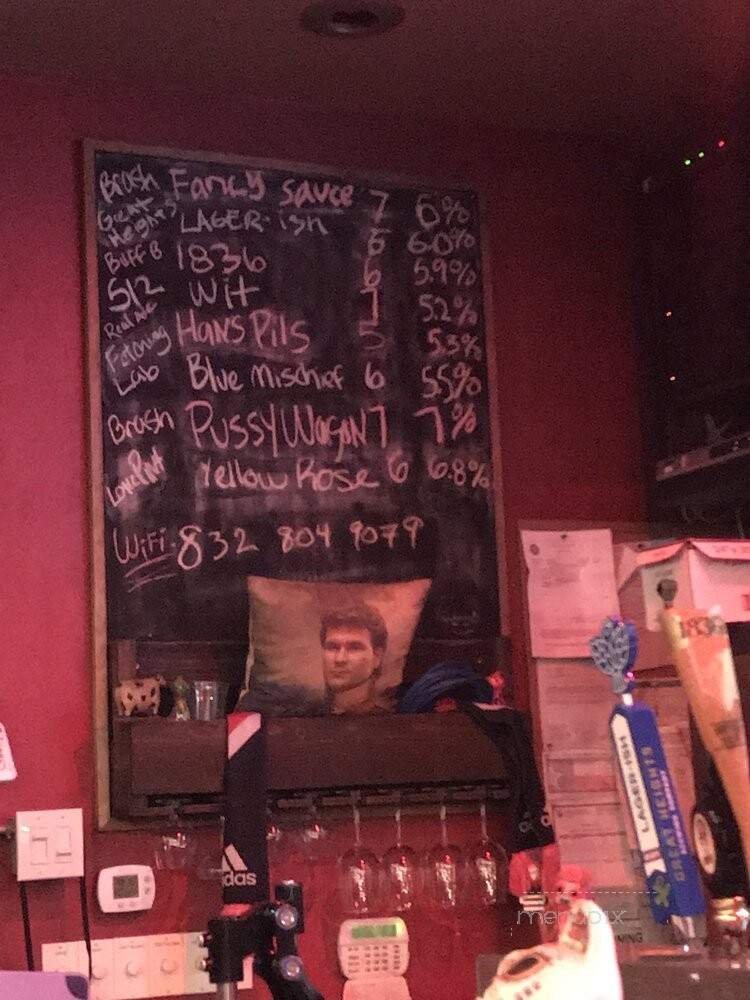 Brash Fancy sauce 7 6%
Great Heights LAGER-ish 6 6.0%
Buff B 1836 6 5.9%
512 Wit 7 5.2%
Real Ale Hans Pils 5 5.3%
Fetching Lab Blue Mischief 6 5.5%
Brash PussyWagon 7 7%
Lone Pint Yellow Rose 6 6.8%
WiFi - 832 804 9079
1836
LAGER-ISH
GREAT HEIGHTS
adidas
menupix